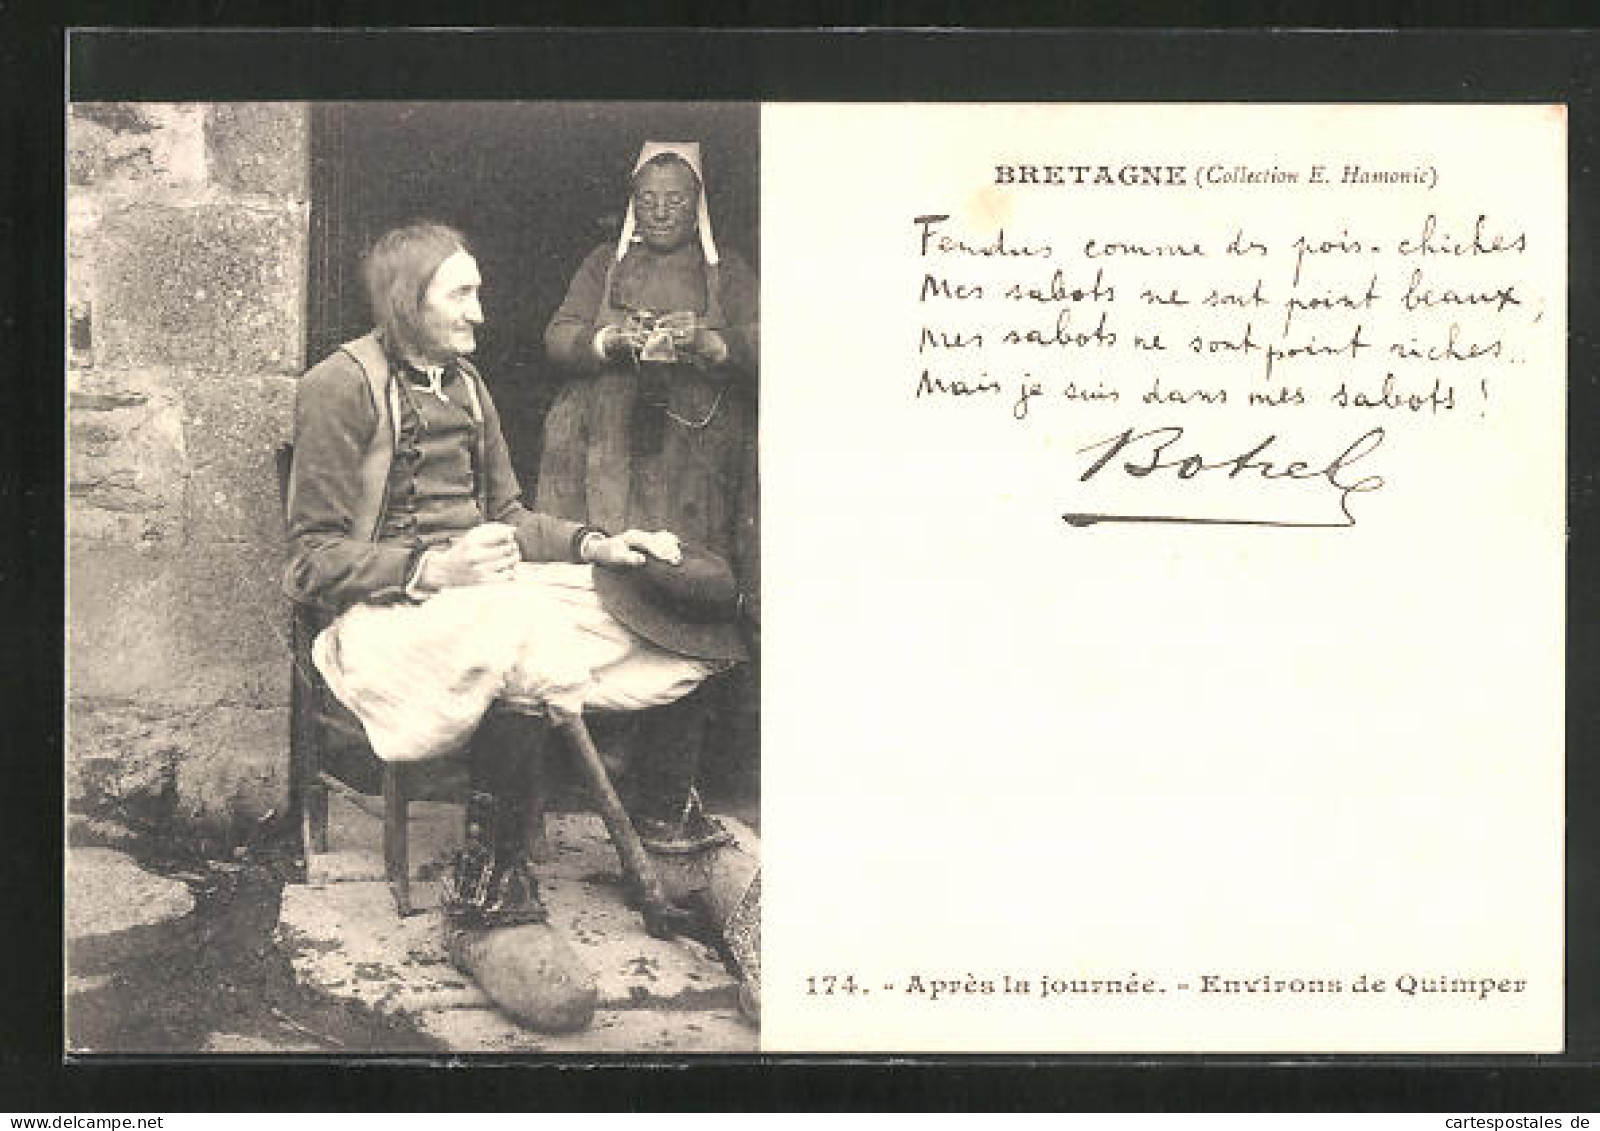 BRETAGNE (Collection E. Hamonic)
Fendus comme des pois-chiches
Mes sabots ne sont point beaux;
Mes sabots ne sont point riches..
Mais je suis dans mes sabots !
Botrel
174. - Après la journée. - Environs de Quimper
www.cartespostales.de
cartespostales de